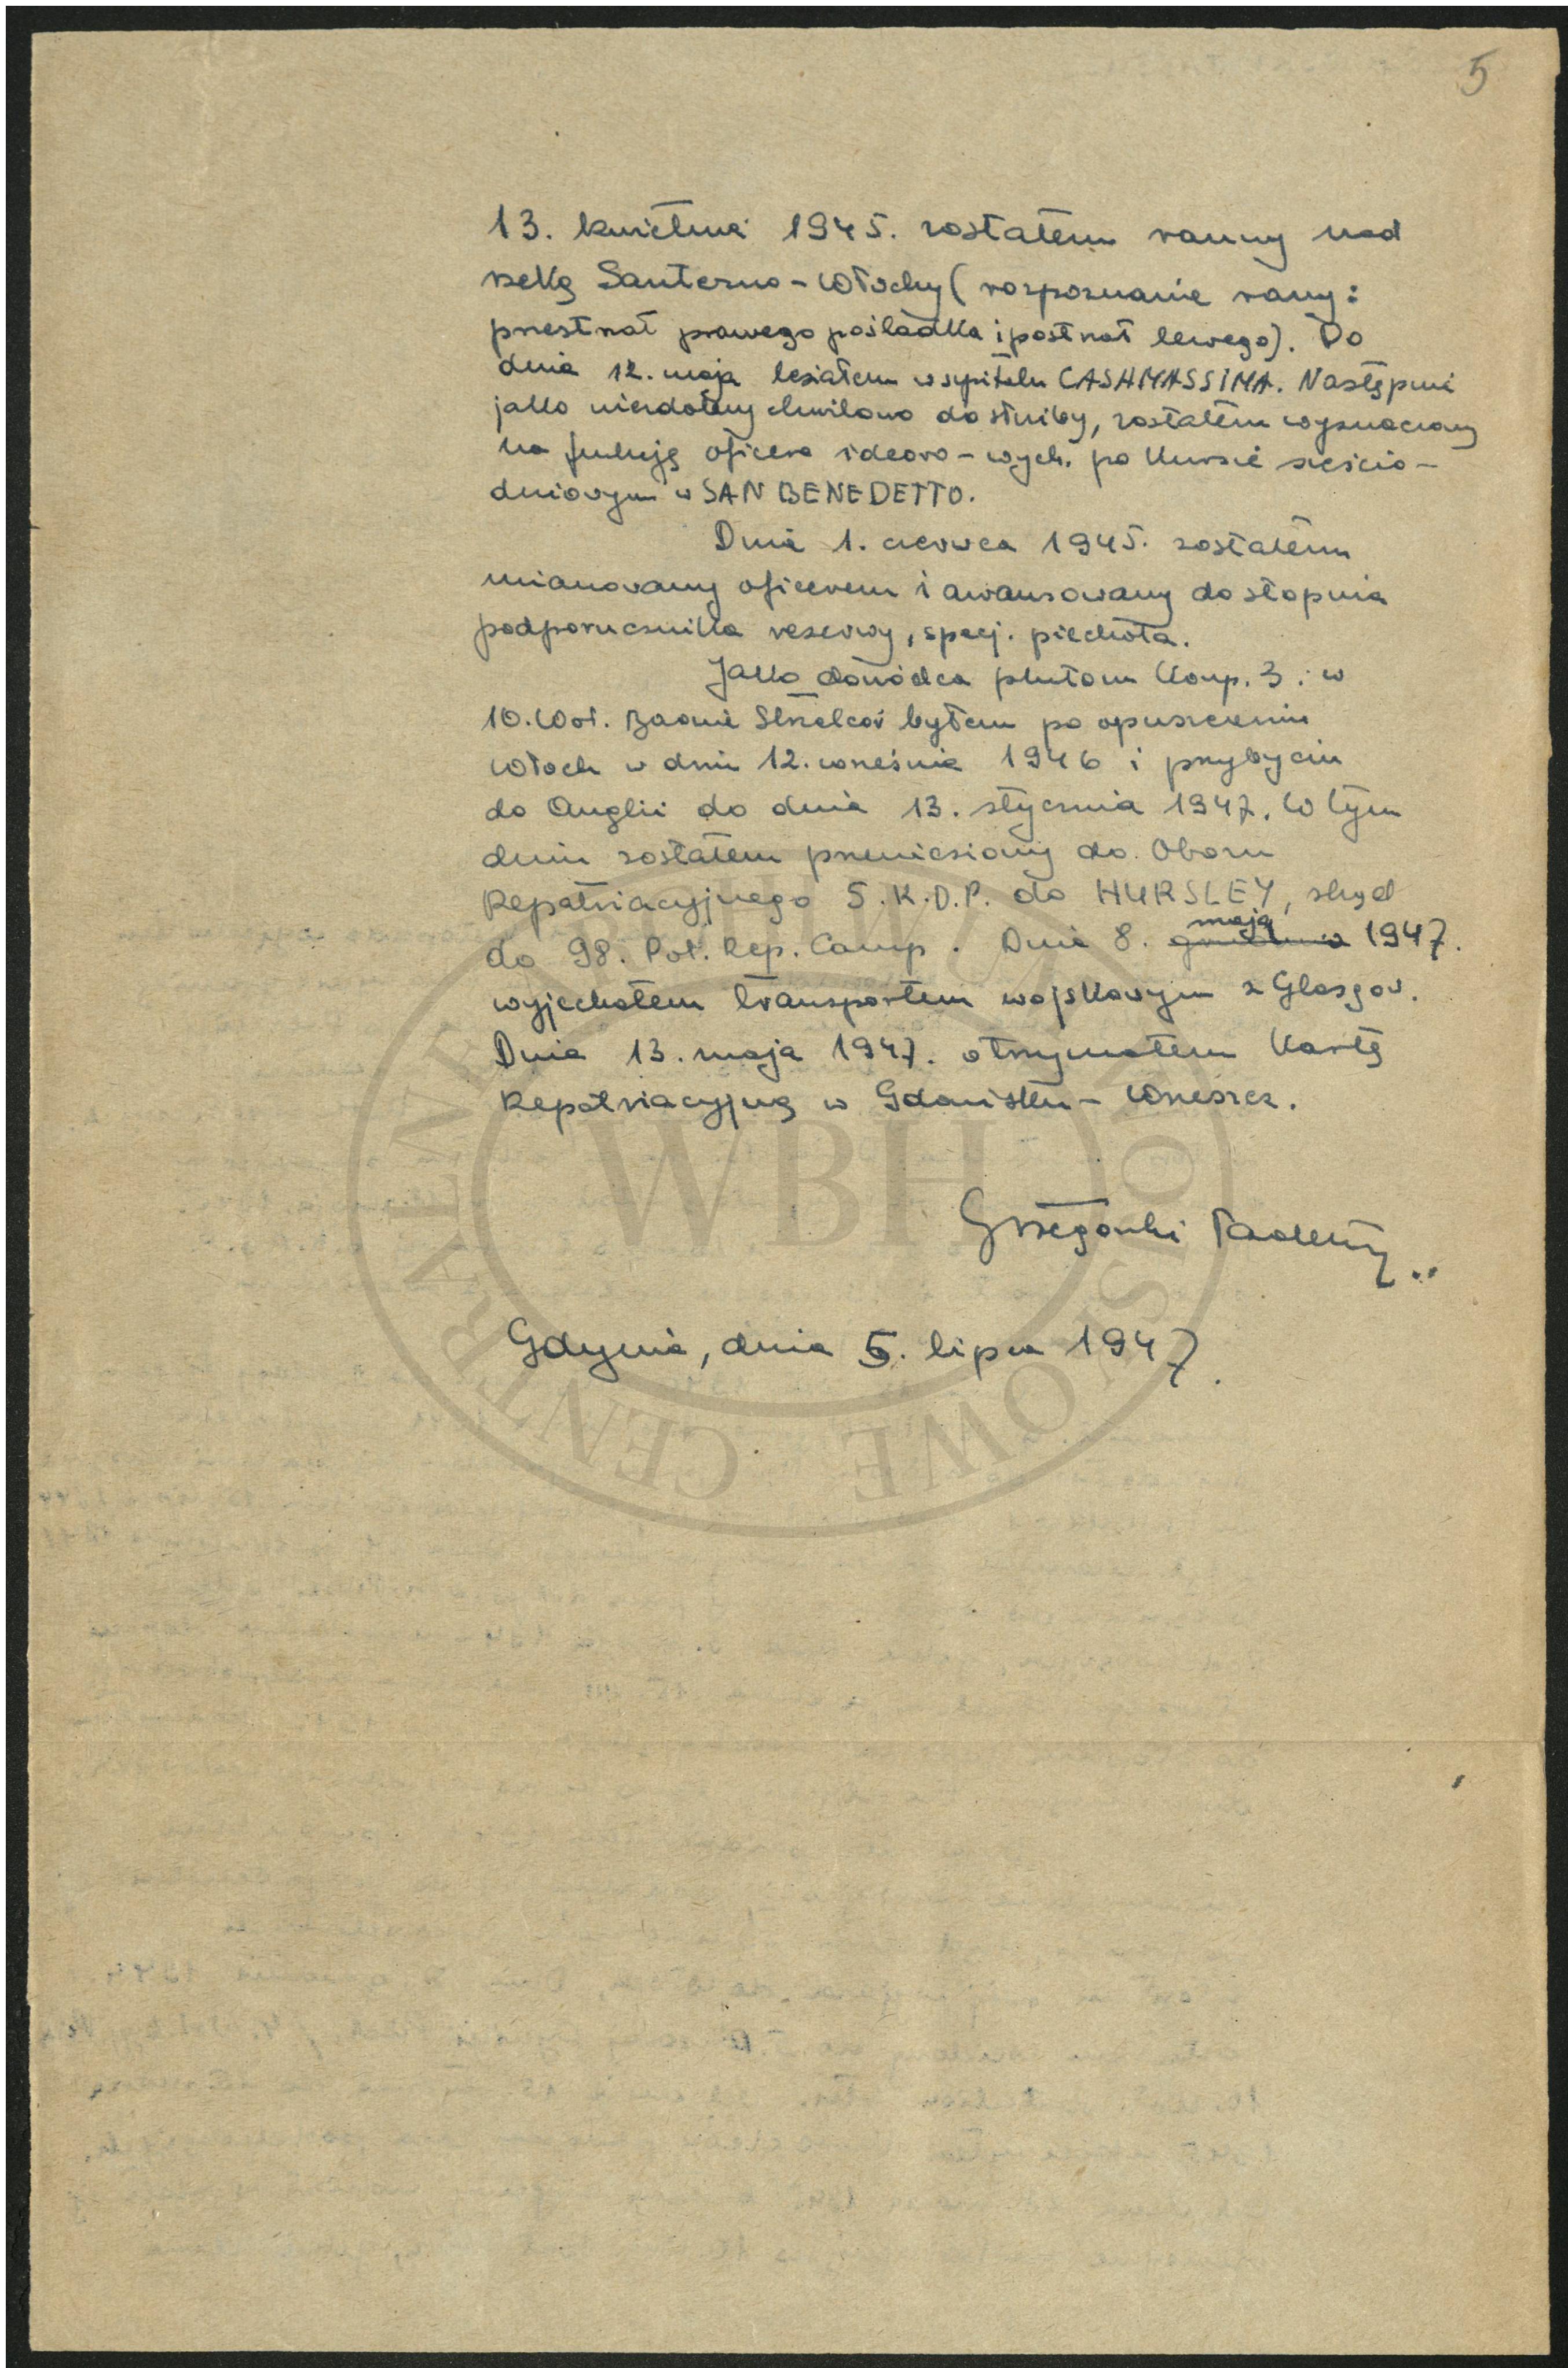 5
13. kwietnia 1945. zostałem ranny nad
rzeką Santerno - Włochy (rozpoznanie rany:
przestrzał prawego pośladka i postrzał lewego). Do
dnia 12. maja leżałem w szpitalu CASAMASSIMA. Następnie
jako niezdolny chwilowo do służby, zostałem wyznaczony
na funkcję oficera ideowo-wych. po kursie sześcio-
dniowym w SAN BENEDETTO.
Dnia 1. czerwca 1945. zostałem
mianowany oficerem i awansowany do stopnia
podporucznika rezerwy, specj. piechota.
Jako dowódca plutonu Komp. 3. w
10. Woł. Baonie Strzelców byłem po opuszczeniu
Włoch w dniu 12. września 1946 i przybyciu
do Anglii do dnia 13. stycznia 1947. W tym
dniu zostałem przeniesiony do Obozu
Repatriacyjnego 5. K.D.P. do HURSLEY, skąd
do 98. Pol. Rep. Camp. Dnia 8. maja 1947.
wyjechałem transportem wojskowym z Glasgow.
Dnia 13. maja 1947. otrzymałem Kartę
Repatriacyjną w Gdańsku - Wrzeszcz.
WBH
Grzegorski Tadeusz
Gdynia, dnia 5. lipca 1947.